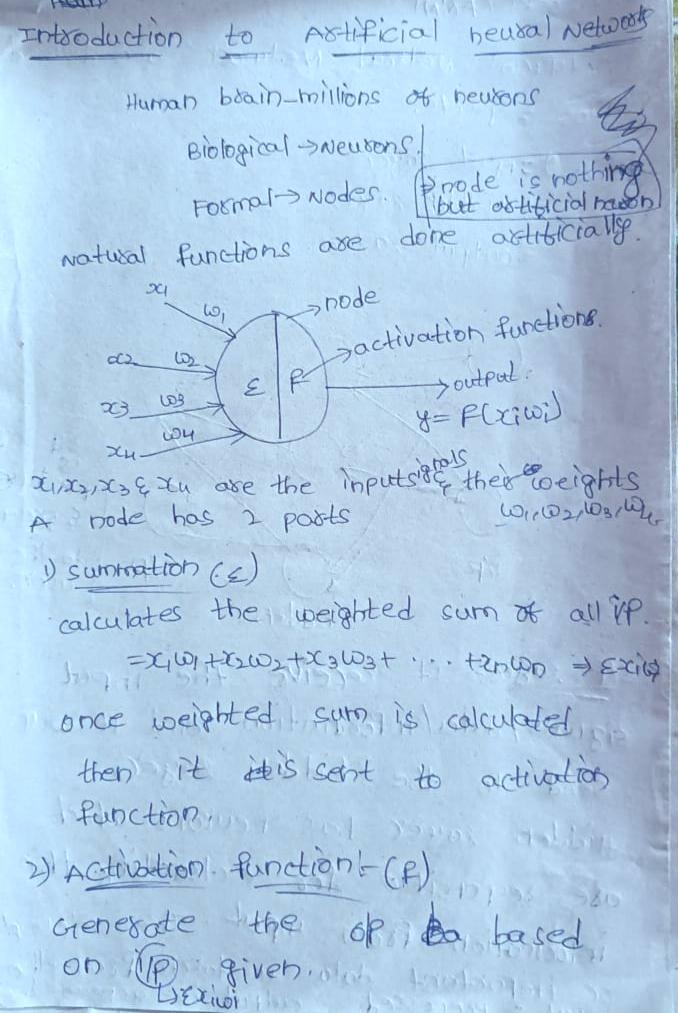 Introduction to Artificial neural Network
Human brain-millions of neurons
Biological → Neurons.
Formal → Nodes.
node is nothing
but artificial neuron
Natural functions are done artificially.
x1
w1
node
activation functions.
x2 w2
Σ f
output.
x3 w3
y = f(xiwi)
x4 w4
x1, x2, x3 & x4 are the input signals & their weights
w1, w2, w3, w4.
A node has 2 parts
1) summation (Σ)
calculates the weighted sum of all i/p.
= x1w1 + x2w2 + x3w3 + . . . . + xnwn ⇒ Σxiwi
once weighted sum is calculated
then it is sent to activation
function.
2) Activation function :- (f)
Generate the o/p based
on i/p given.
↳ Σxiwi